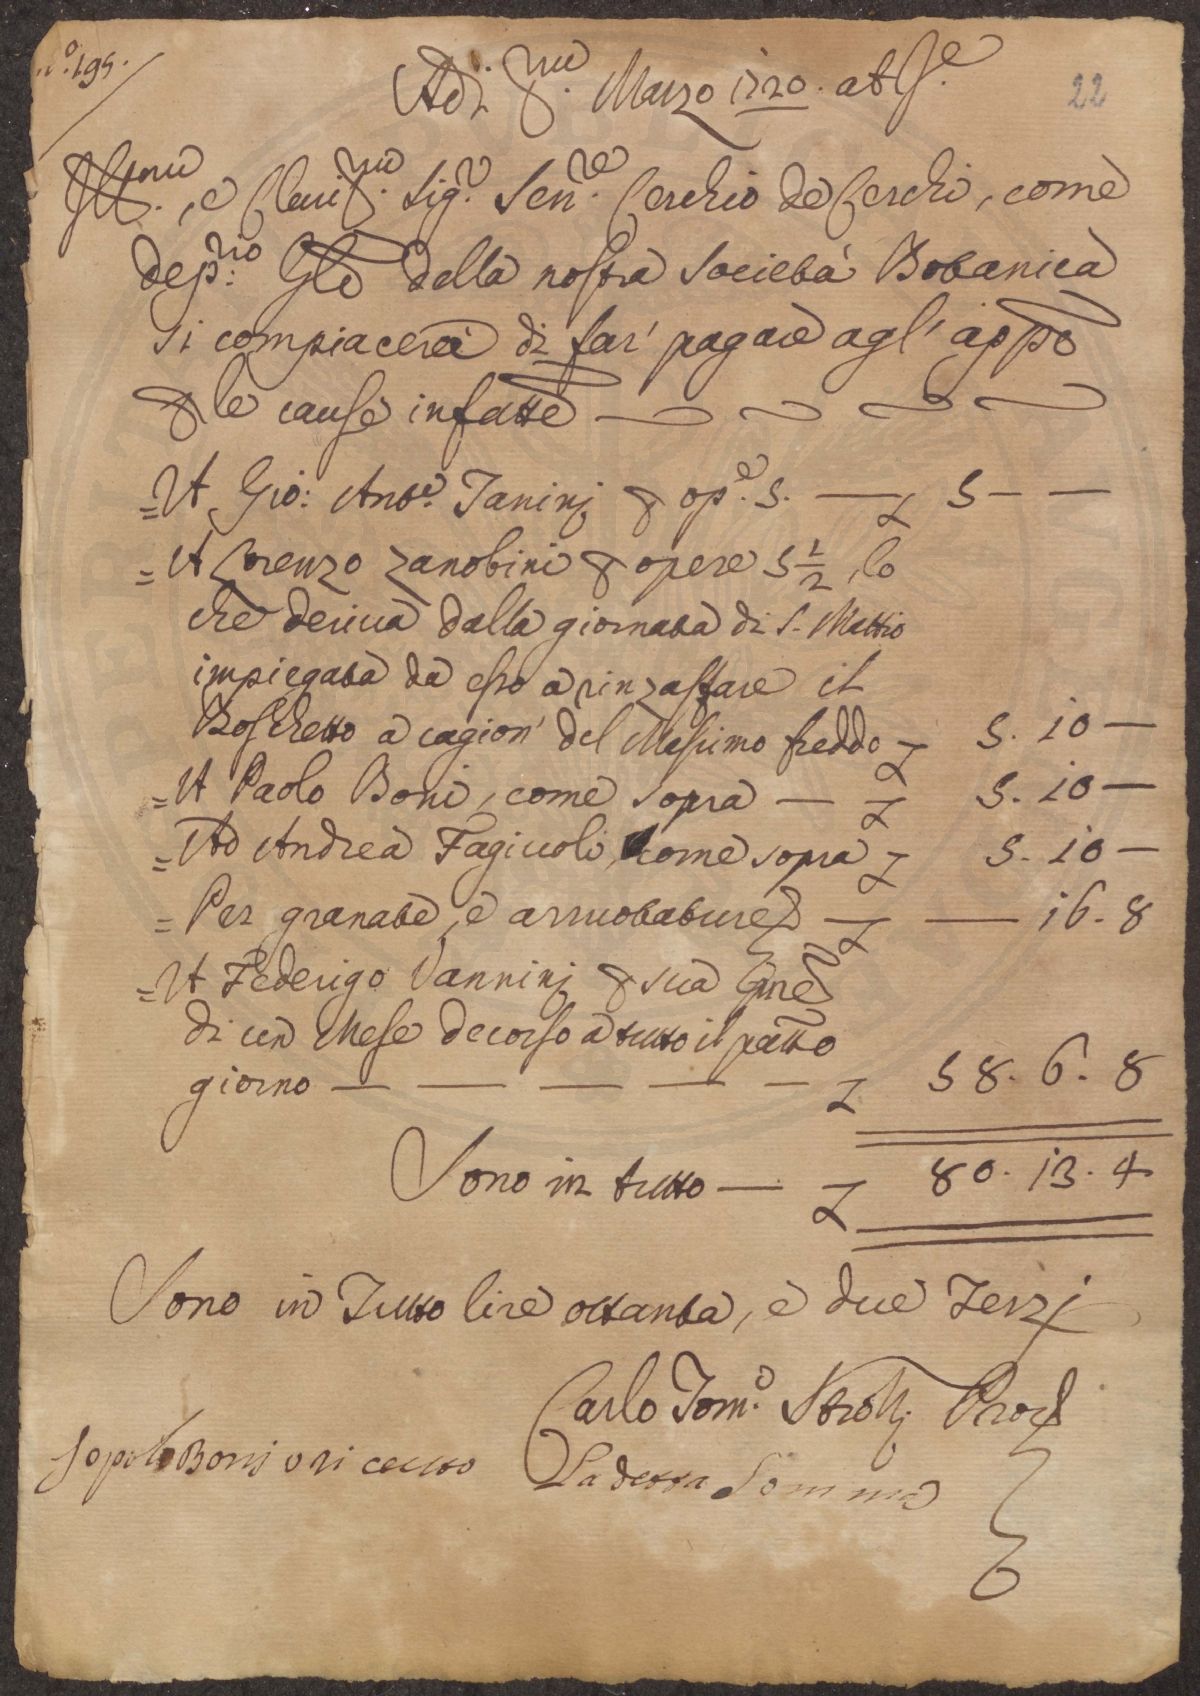 N.º 195.
22
Adì p.mo Marzo 1720. ab Inc.e
Ill.mo, e Clariss.mo Sig.r Sen.re Cerchio de Cerchi, come
dep.rio Gle della nostra Società Botanica
si compiacerà di far' pagare agl' app.o
p le cause infatte
= A Gio: Ant.o Janinj p op.e 5. — £ 5 — —
= A Lorenzo Zanobini p opere 5 1/2, lo
che deriva dalla giornata di S. Mattio
impiegata da esso a rinzaffare il
Boschetto a cagion' del Massimo freddo £ 5. 10 —
= A Paolo Boni, come sopra — £ 5. 10 —
= Ad Andrea Fagiuoli, come sopra £ 5. 10 —
= Per granate, e arruotature — £ — 16. 8
= A Federigo Vanninj p sua
di un Mese decorso a tutto il patto
giorno — — — — — £ 58. 6. 8
Sono in tutto — £ 80. 13. 4
Sono in Tutto lire ottanta, e due Terzj
Carlo Tom.o Strozzj
Io polo Bonj o ri ceuto La detta Somma